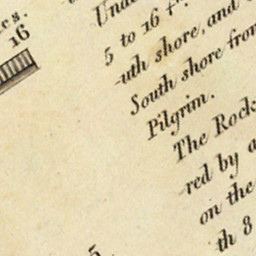 es.
16
Unde
5 to 16 f.
-uth shore, and
South shore from
Pilgrim.
The Rock
red by a
on the
th 8
5